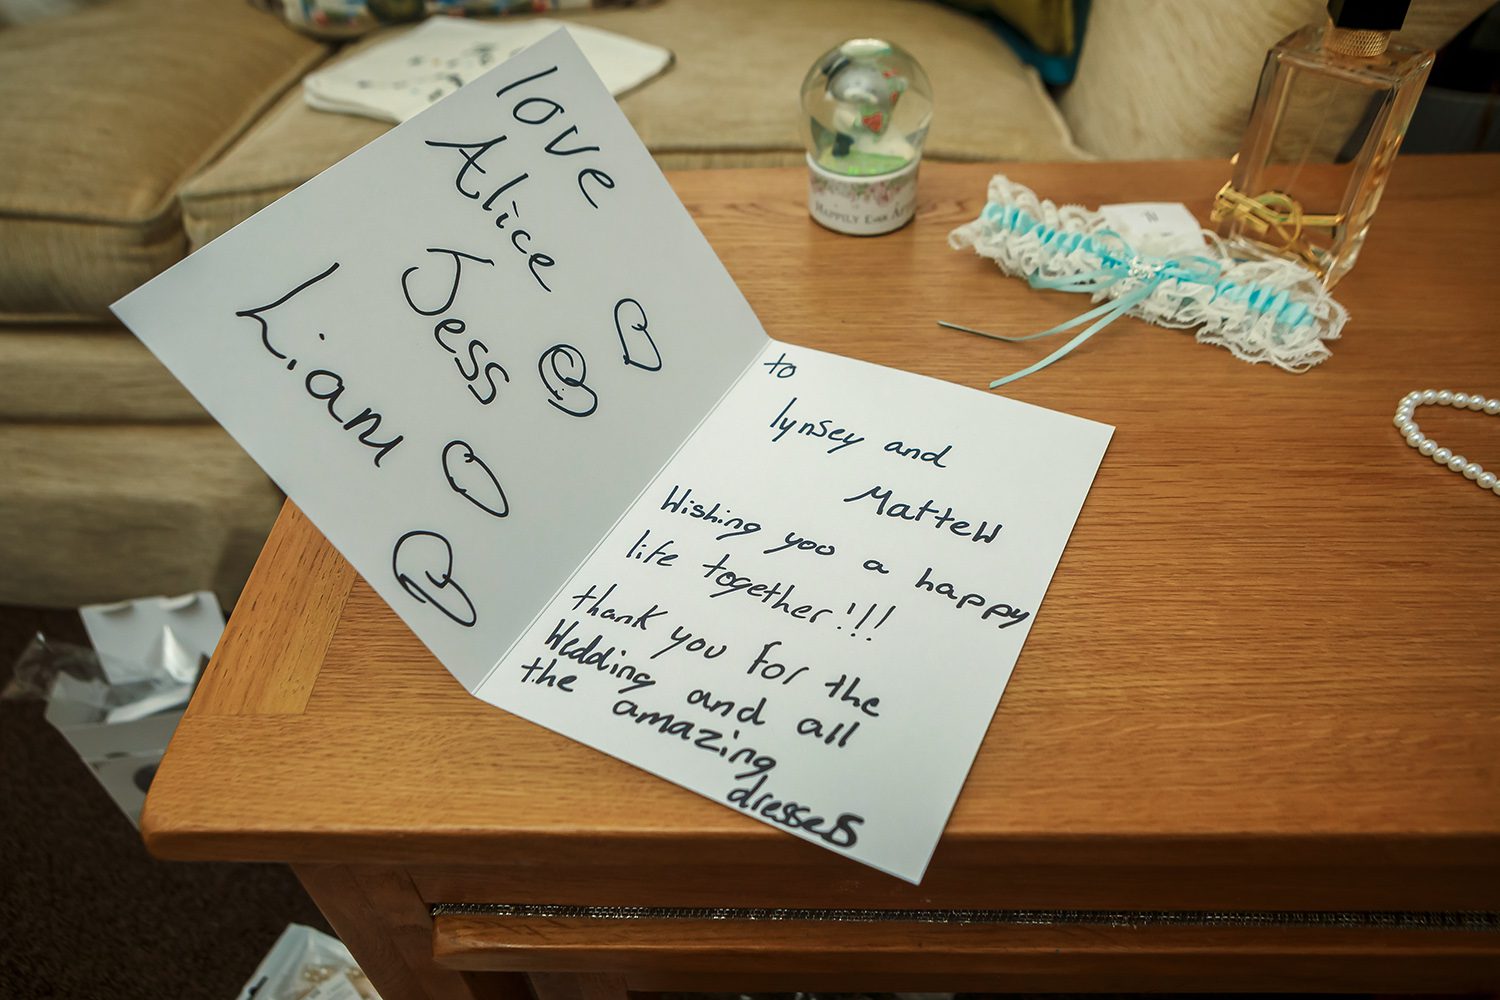 love
Alice
Jess
Liam
to
lynsey and
Mattew
Wishing you a happy
life together!!!
thank you for the
Wedding and all
the amazing
dresses
HAPPILY EVER AFTER